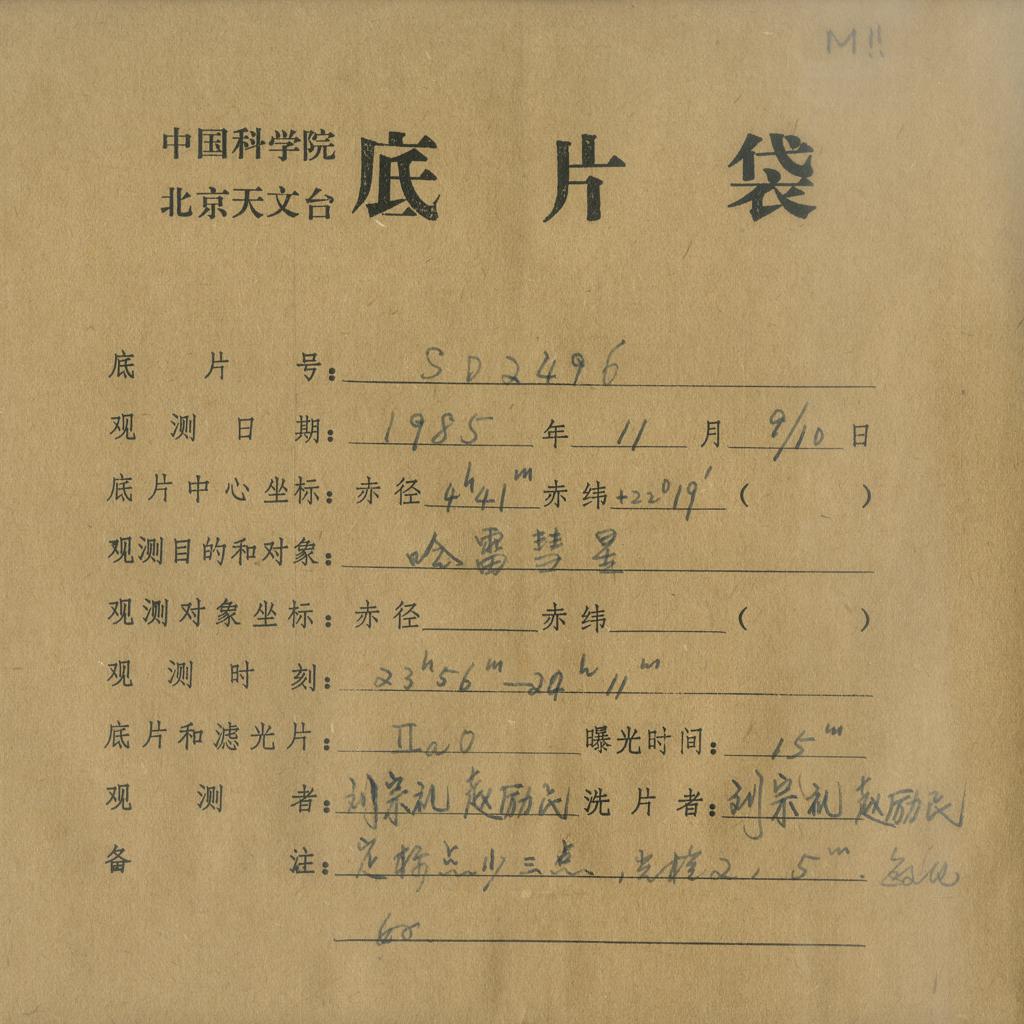 M!!
中国科学院
北京天文台 底片袋
底片号: SD2496
观测日期: 1985年11月9/10日
底片中心坐标: 赤径 4ʰ41ᵐ 赤纬 +22°19′ ( )
观测目的和对象: 哈雷彗星
观测对象坐标: 赤径 赤纬 ( )
观测时刻: 23ʰ56ᵐ—24ʰ11ᵐ
底片和滤光片: IIaO 曝光时间: 15ᵐ
观测者: 刘宗礼 赵励民 洗片者: 刘宗礼 赵励民
备注: 定标点少三点, 光楔2, 5ᵐ.